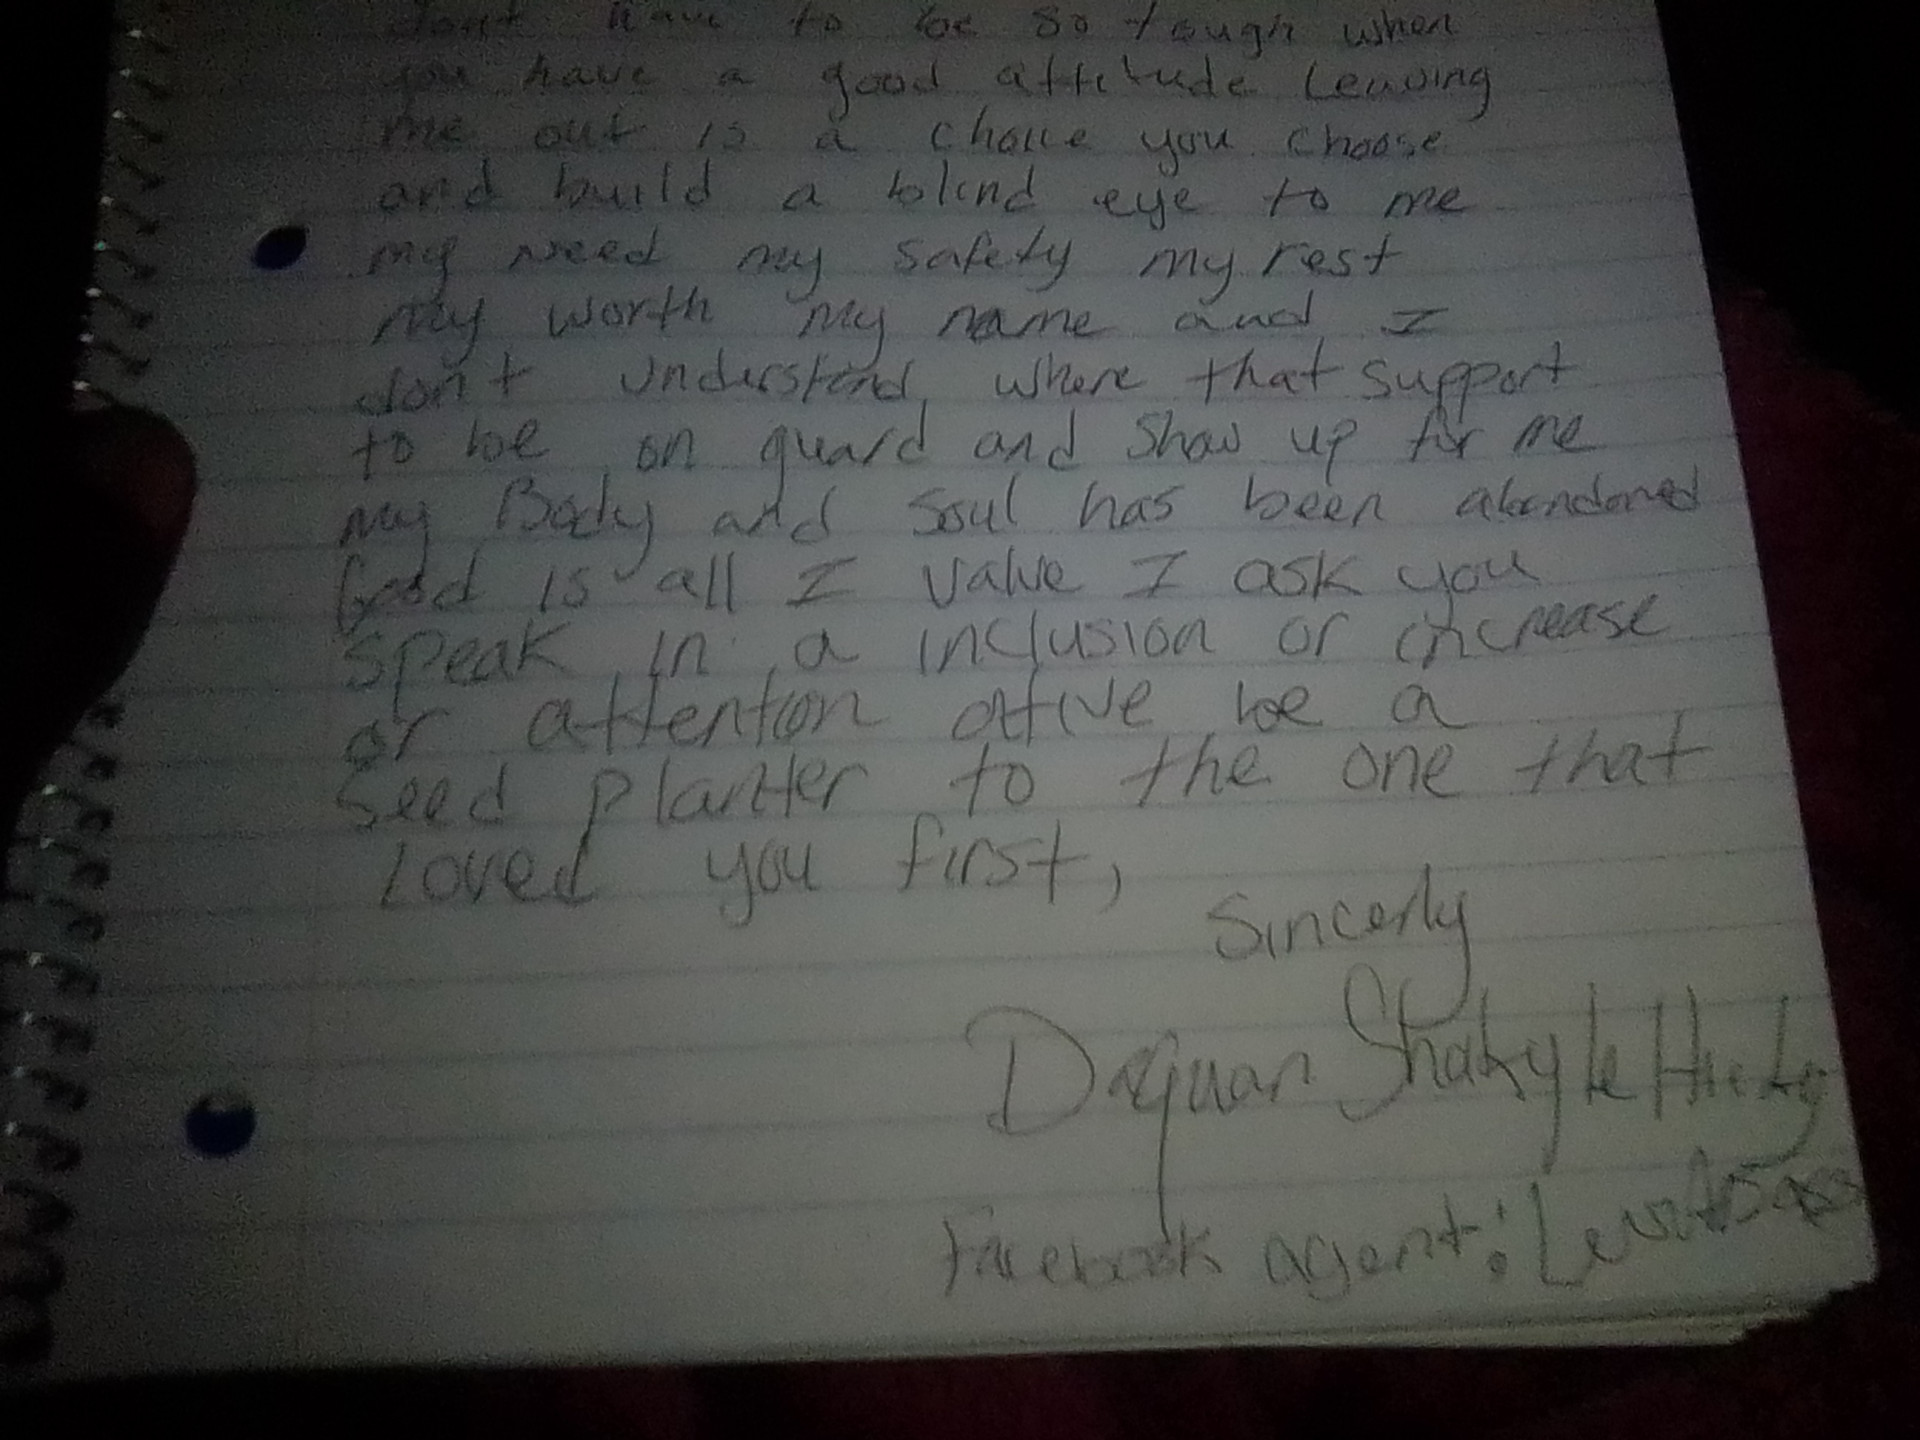 dont have to be so tough when
you have a good attitude Leaving
me out is a choice you choose
and build a blind eye to me
my need my safety my rest
my worth my name and I
don't understand where that support
to be on guard and show up for me
my Body and soul has been abandoned
God is all I value I ask you
speak in a inclusion or increase
or attention ative be a
seed planter to the one that
Loved you first,
Sincerly
Daquan Shakyle
Facebook agent: